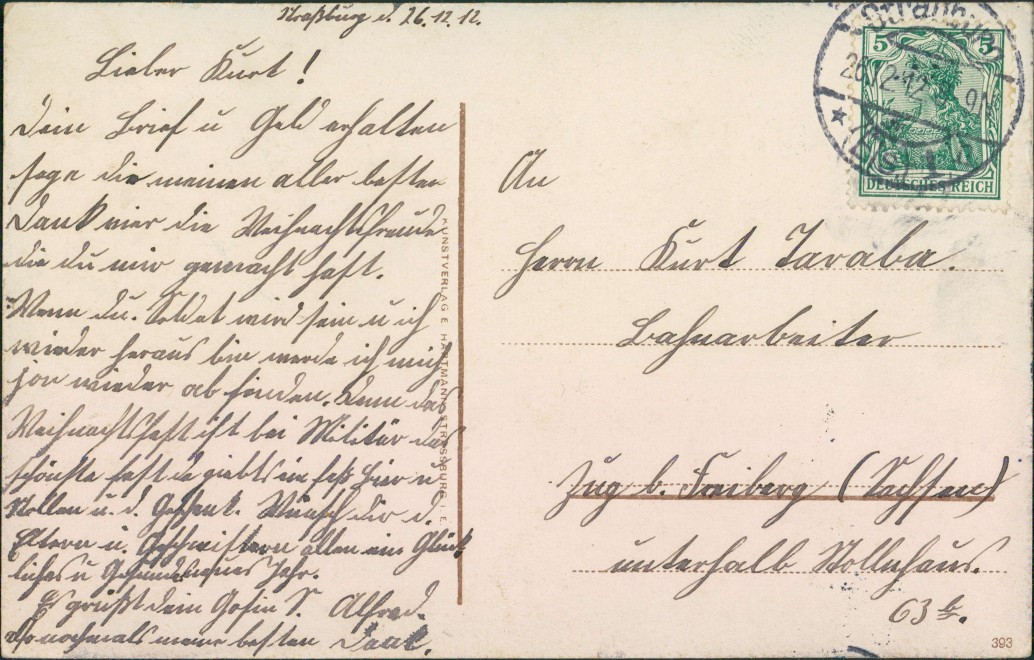 Straßburg d. 26.12.12.
Lieber Kurt!
Dein Brief u Geld erhalten
sage die meinen aller besten
Dank mir die Weihnachtsfreude
die du mir gemacht hast.
Wenn du. Soldat wird sein u ich
wieder heraus bin werde ich mich
wieder ab finden. Denn das
Weihnachtsfest ist bei Militär das
schönste fest da giebts ein faß Bier u
Stollen u. d. Geschenk. Wünsch dir d.
Eltern u. Geschwistern allen ein Glück
liches u Gesundes neues Jahr.
Es grüßt dein Alfred.
nochmals meine besten Dank.
KUNSTVERLAG E HARTMANN STRASSBURG I. E.
5 5
DEUTSCHES REICH
Straßburg
26.12.12. 9N
* (Els) 1
An
Herrn Kurt Taraba.
Bahnarbeiter
Zug b. Freiberg (Sachsen)
unterhalb Stollnhaus.
63 b.
393